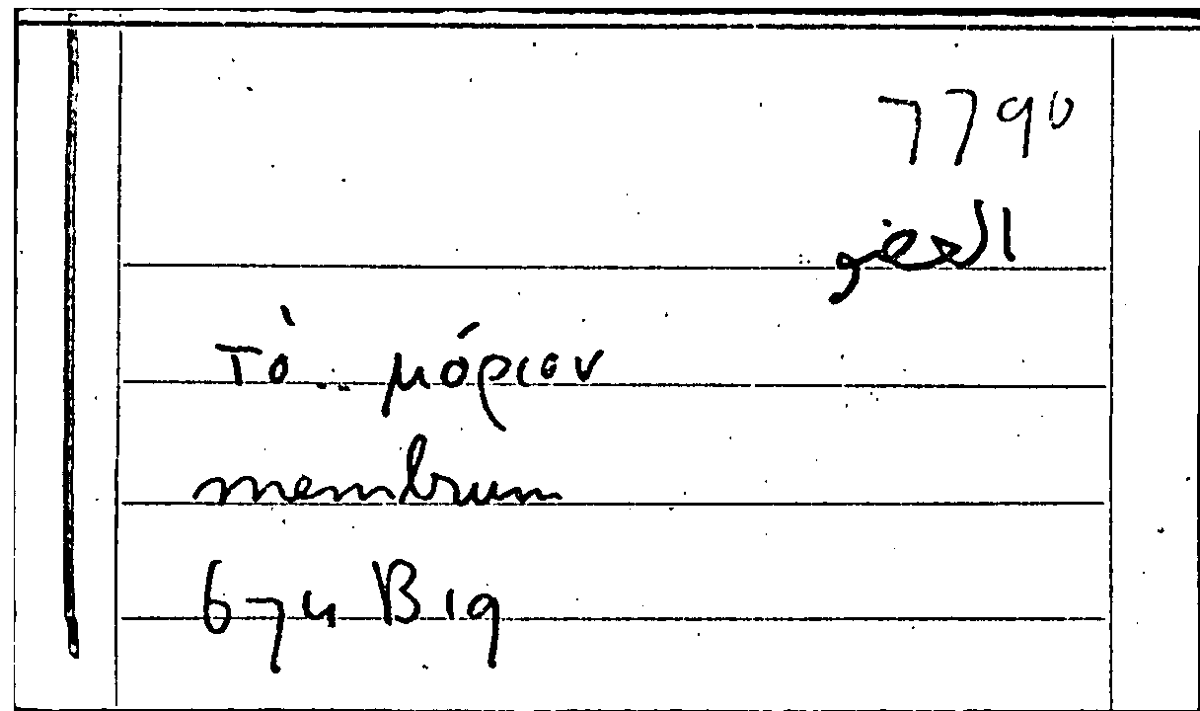 7790
العضو
τὸ .. μόριον
membrum
674 B 19